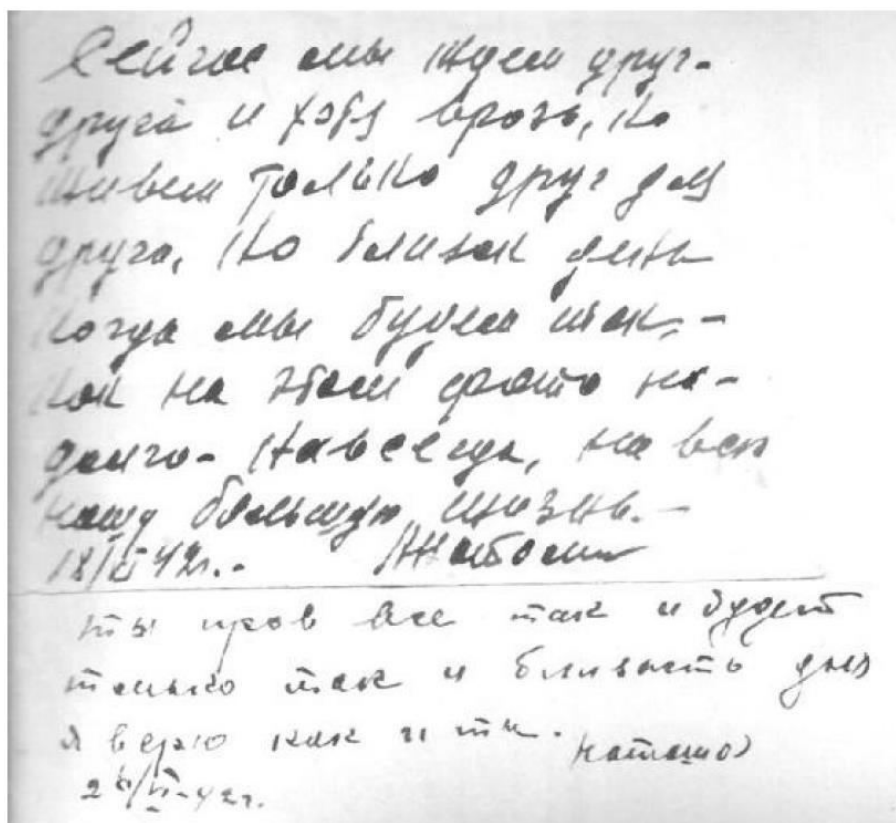 Сейчас мы ждем друг-
друга и хотя врозь, но
живем только друг для
друга, но близок день
когда мы будем так, -
как на этом фото на-
долго - навсегда, на всю
нашу большую жизнь. -
18/VI 42г..
ты прав все так и будет
только так и близость дня
я верю как и ты.
Наташа
/VI-42г.